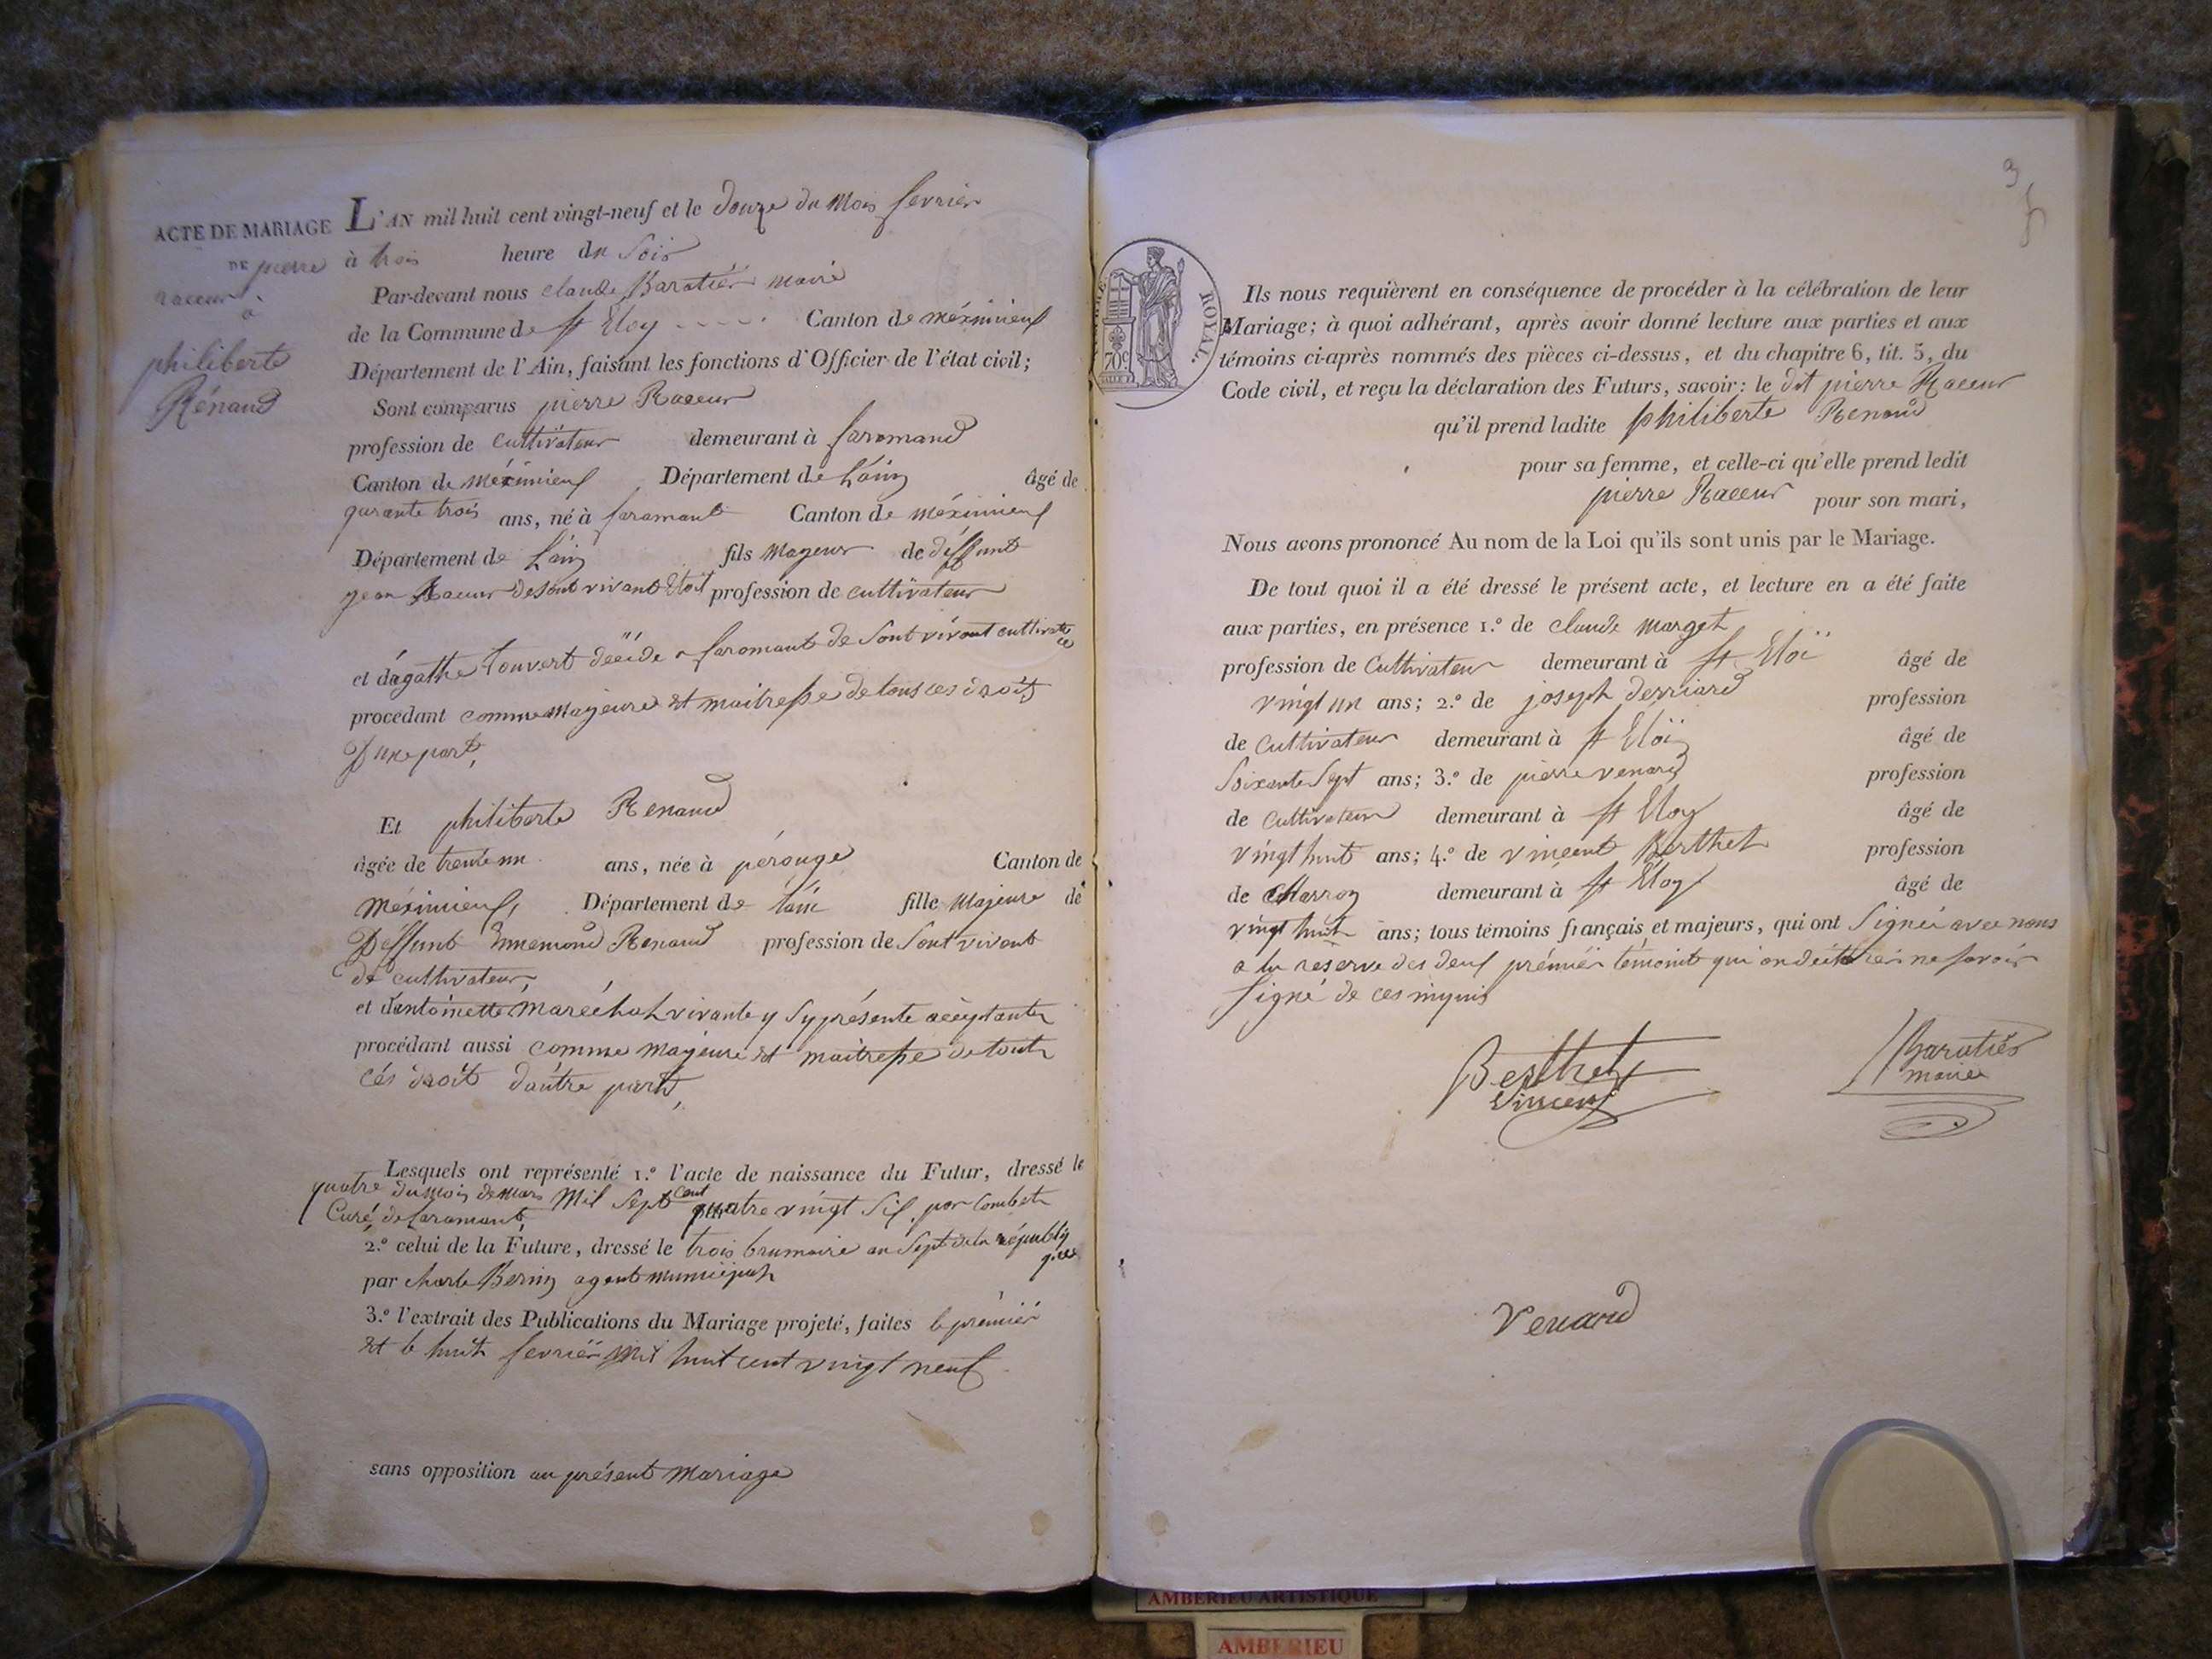 ACTE DE MARIAGE
DE pierre
raceur
à
philiberte
Rénaud
L'AN mil huit cent vingt-neuf et le douze du mois fevrier
à trois heure du Soir
Par-devant nous claude Baratier maire
de la Commune de St Eloy - - - - Canton de méximieux
Département de l'Ain, faisant les fonctions d'Officier de l'état civil;
Sont comparus pierre Raceur
profession de cultivateur demeurant à faramand
Canton de méximieux Département de L'ain âgé de
quarante trois ans, né à faramant Canton de méximieux
Département de L'ain fils mageur de déffunt
jean Raceur de sont vivant Etoit profession de cultivateur
et d'agathe Touvert décide a faramant de Sont vivant cultivatrice
procédant comme majeure et maitresse de tous ces droits
D'une part,
Et philiberte Renaud
âgée de trente un ans, née à pérouge Canton de
méximieux, Département de L'ain fille majeure de
Déffunt Ennemond Renaud profession de Sont vivant
de cultivateur,
et d'antoinette maréchal vivante y Sy présente acceptante
procédant aussi comme majeure et maitresse de tout
cés droit d'autre part,
Lesquels ont représenté 1.º l'acte de naissance du Futur, dressé le
quatre du mois de mars mil Sept cent quatre vingt Six par Combet
Curé de faramant,
2.º celui de la Future, dressé le trois brumaire an Sept de la républiq
que
par charle Bernin agent municipal
3.º l'extrait des Publications du Mariage projeté, faites le prémier
et le huit fevrier mil huit cent vingt neuf
sans opposition au présent mariage
3
ROYAL.
70c
Ils nous requièrent en conséquence de procéder à la célébration de leur
Mariage; à quoi adhérant, après avoir donné lecture aux parties et aux
témoins ci-après nommés des pièces ci-dessus, et du chapitre 6, tit. 5, du
Code civil, et reçu la déclaration des Futurs, savoir: le dit pierre Raceur
qu'il prend ladite philiberte Renaud
pour sa femme, et celle-ci qu'elle prend ledit
pierre Raceur pour son mari,
Nous avons prononcé Au nom de la Loi qu'ils sont unis par le Mariage.
De tout quoi il a été dressé le présent acte, et lecture en a été faite
aux parties, en présence 1.º de claude marget
profession de Cultivateur demeurant à St Eloï âgé de
vingt un ans; 2.º de joseph derriard profession
de cultivateur demeurant à St Eloï âgé de
Soixante Sept ans; 3.º de pierre venard profession
de cultivateur demeurant à St Eloy âgé de
vingt huit ans; 4.º de vincent Berthet profession
de charron demeurant à St Eloy âgé de
vingt huit ans; tous témoins français et majeurs, qui ont Signér avec nous
a la reserve des deux prémiér témoint qui on ne savoir
Signé de ces inquis
Berthet
Vincent
Baratiér
maire
Venard
AMBERIEU ARTISTIQUE
AMBERIEU